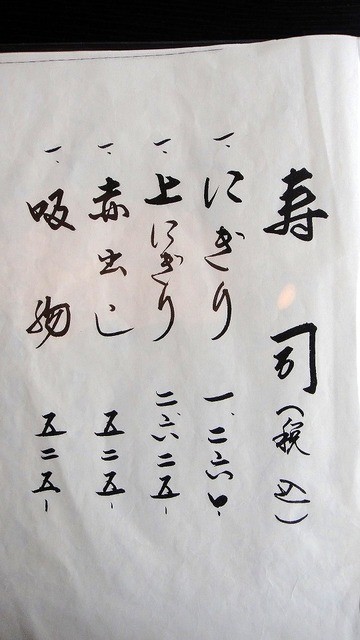 寿司(税込)
一、にぎり 一、二六〇-
一、上にぎり 二、六二五-
一、赤出し 五二五-
一、吸物 五二五-